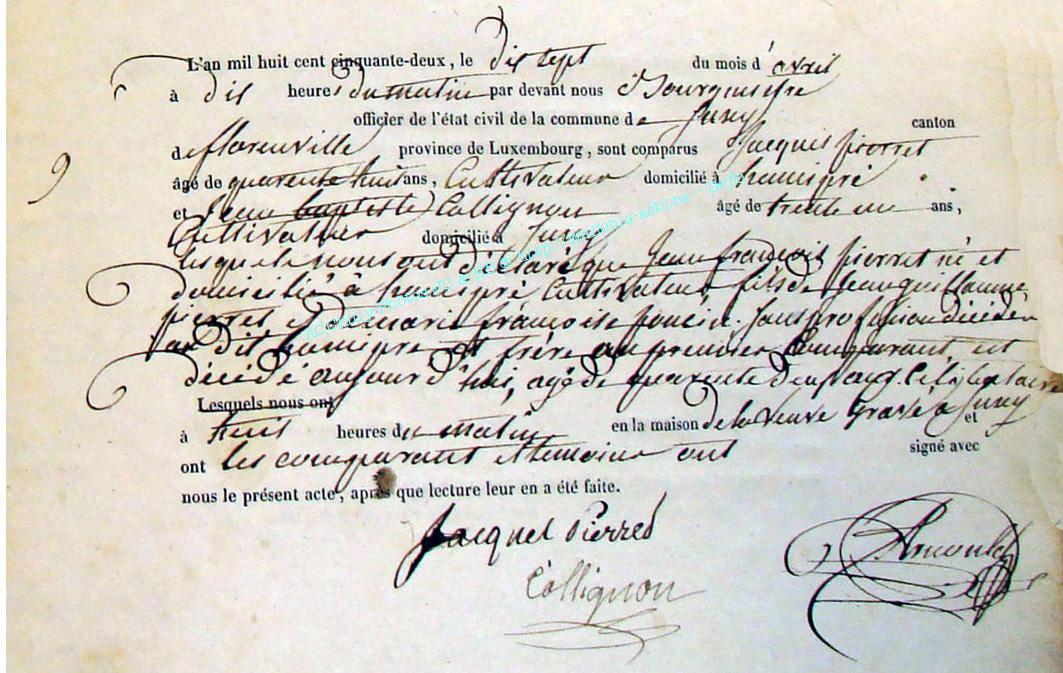 L'an mil huit cent cinquante-deux, le dix sept du mois d'avril
à dix heures du matin par devant nous Bourguesttre
officier de l'état civil de la commune de Suxy canton
9
de florenville province de Luxembourg, sont comparus Jacques pierret
âgé de quarente huit ans, Cultivateur domicilié à hamipré
et Jean baptiste Collignon âgé de trente un ans,
Cultivateur domicilié à Suxy
lesquels nous ont déclaré que Jean françois pierret né et
domicilié à hamipré, Cultivateur, fils de Jean guillaume
pierret et de marie françoise poncin, sans profession décédée
au dit hamipré et frère au premier Comparant, est
décédé aujourd'hui, agé de quarente deux ans, Celibataire
Lesquels nous ont
à huit heures du matin en la maison de la veuve gravé à Suxy et
ont les comparant et temoins ont signé avec
nous le présent acte, après que lecture leur en a été faite.
Jacques Pierret
Collignon
Arnould